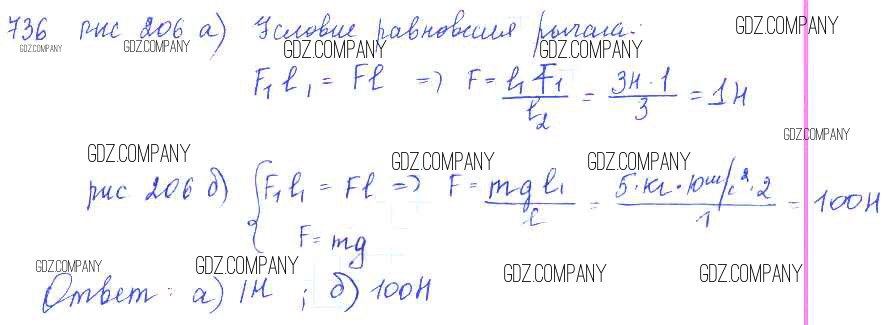 736 рис 206 а) Условие равновесия рычага:
GDZ.COMPANY GDZ.COMPANY GDZ.COMPANY GDZ.COMPANY GDZ.COMPANY
F₁ l₁ = Fl => F = l₁ F₁ / l₂ = 3Н · 1 / 3 = 1Н
GDZ.COMPANY
GDZ.COMPANY GDZ.COMPANY GDZ.COMPANY
рис 206 б) { F₁ l₁ = Fl => F = mg l₁ / l = 5 · кг · 10м/с² · 2 / 1 = 100Н
F = mg
GDZ.COMPANY GDZ.COMPANY GDZ.COMPANY GDZ.COMPANY
Ответ: а) 1Н ; б) 100Н